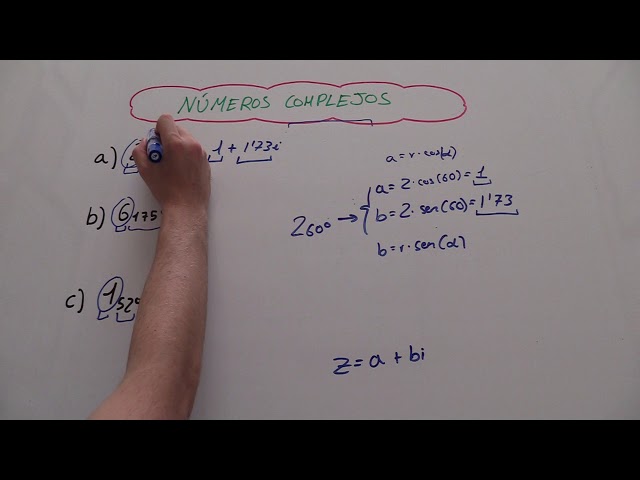 NÚMEROS COMPLEJOS
a) 1 + 1'73i
b) 6175
c) 1529
a = r·cos(α)
a = 2·cos(60) = 1
b = 2·sen(60) = 1'73
260° →
b = r·sen(α)
z = a + bi